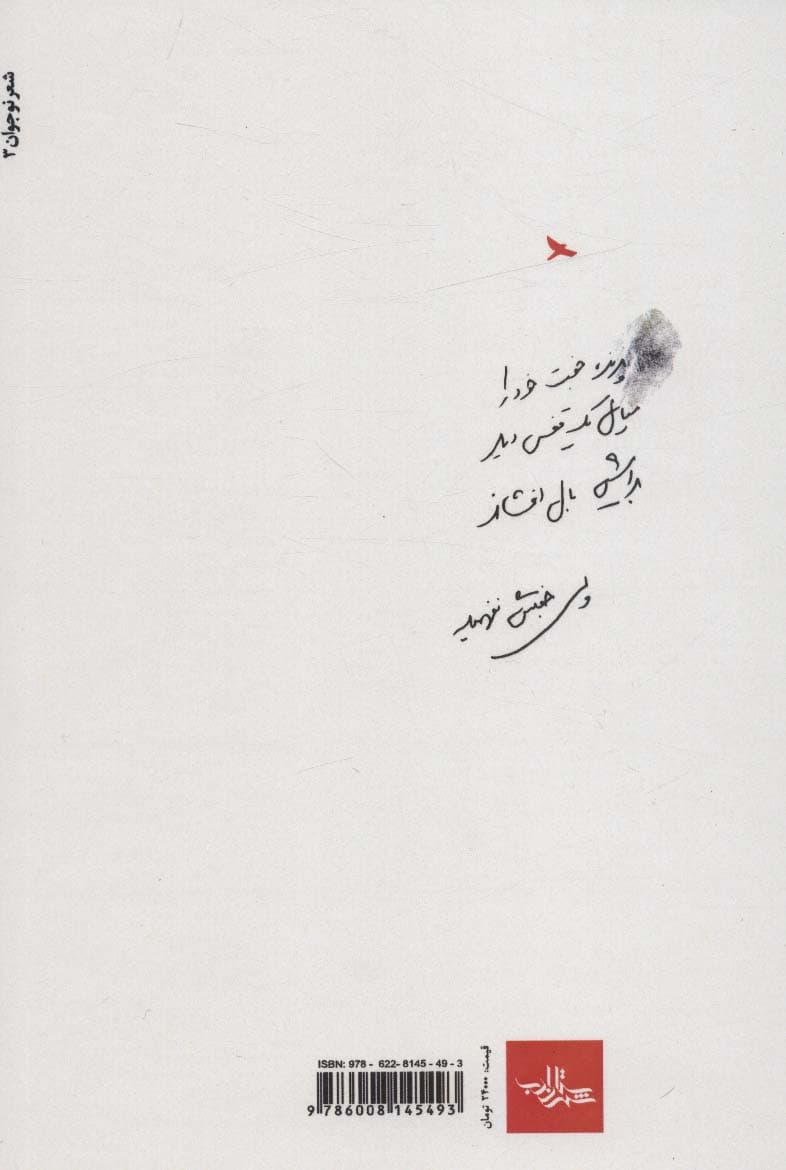 شعر نوجوان ۳
پرنده، جفت خود را
میان یک قفس دید
برایش بال افشاند
ولی جفتش نفهمید
ISBN: 978 - 622- 8145 - 49 - 3
9 786008 145493
قیمت: ۲۴۰۰۰ تومان
شهرستان ادب